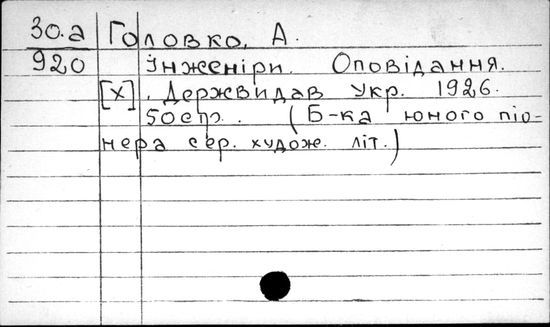 30.а Головко, А.
920 Інженіри. Оповідання.
[х]. Держвидав Укр. 1926.
50стр. (Б-ка юного піо-
нера сер. худож. літ.)